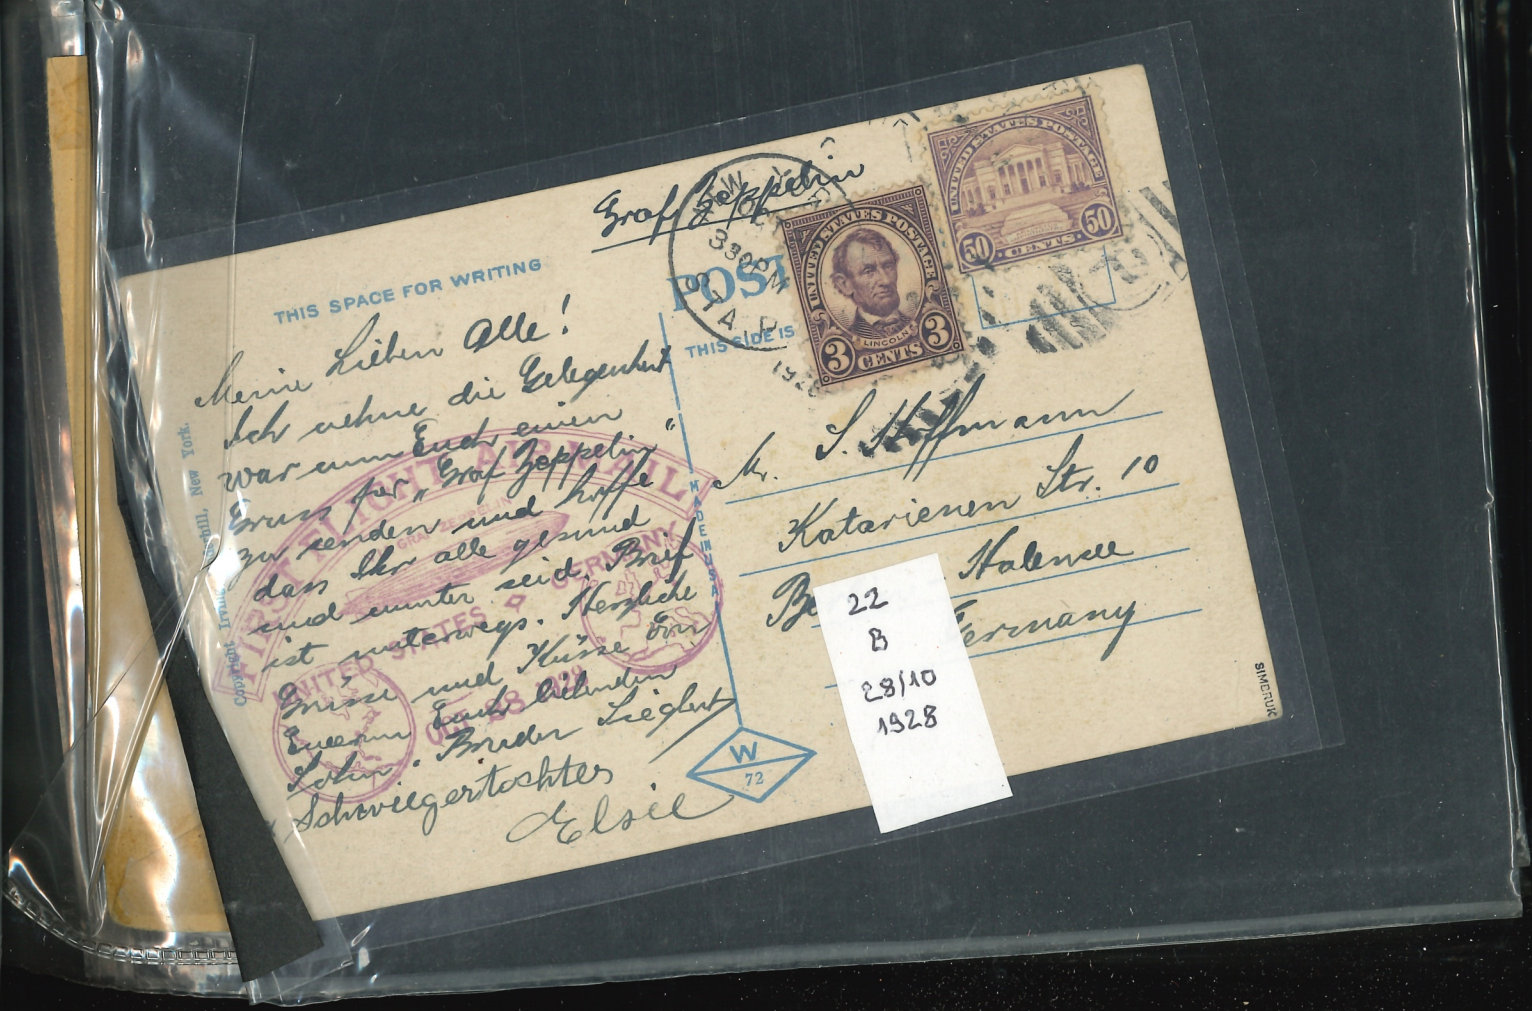 Graf Zeppelin
THIS SPACE FOR WRITING
POST
THIS SIDE IS
3 30 PM
STA. D
1928
UNITED STATES POSTAGE
LINCOLN
3 CENTS 3
UNITED STATES POSTAGE
50 CENTS 50
Meine Lieben Alle!
Ich nehme die Gelegenheit
war um Euch einen
Gruss per „Graf Zeppelin“
zu senden und hoffe
dass Ihr alle gesund
und munter seid. Brief
ist unterwegs. Herzliche
Grüsse und Küsse von
Eueren Euch liebenden
Sohn, Bruder Siegbert
Schwiegertochter
Elsie
FIRST FLIGHT AIR MAIL
GRAF ZEPPELIN
UNITED STATES GERMANY
OCT 28 1928
Copyright Irving Underhill, New York.
MADE IN U.S.A.
W
72
Mr. S. Hoffmann
Katarienen Str. 10
Be Halensee
Germany
22
B
28/10
1928
SIMDRUK